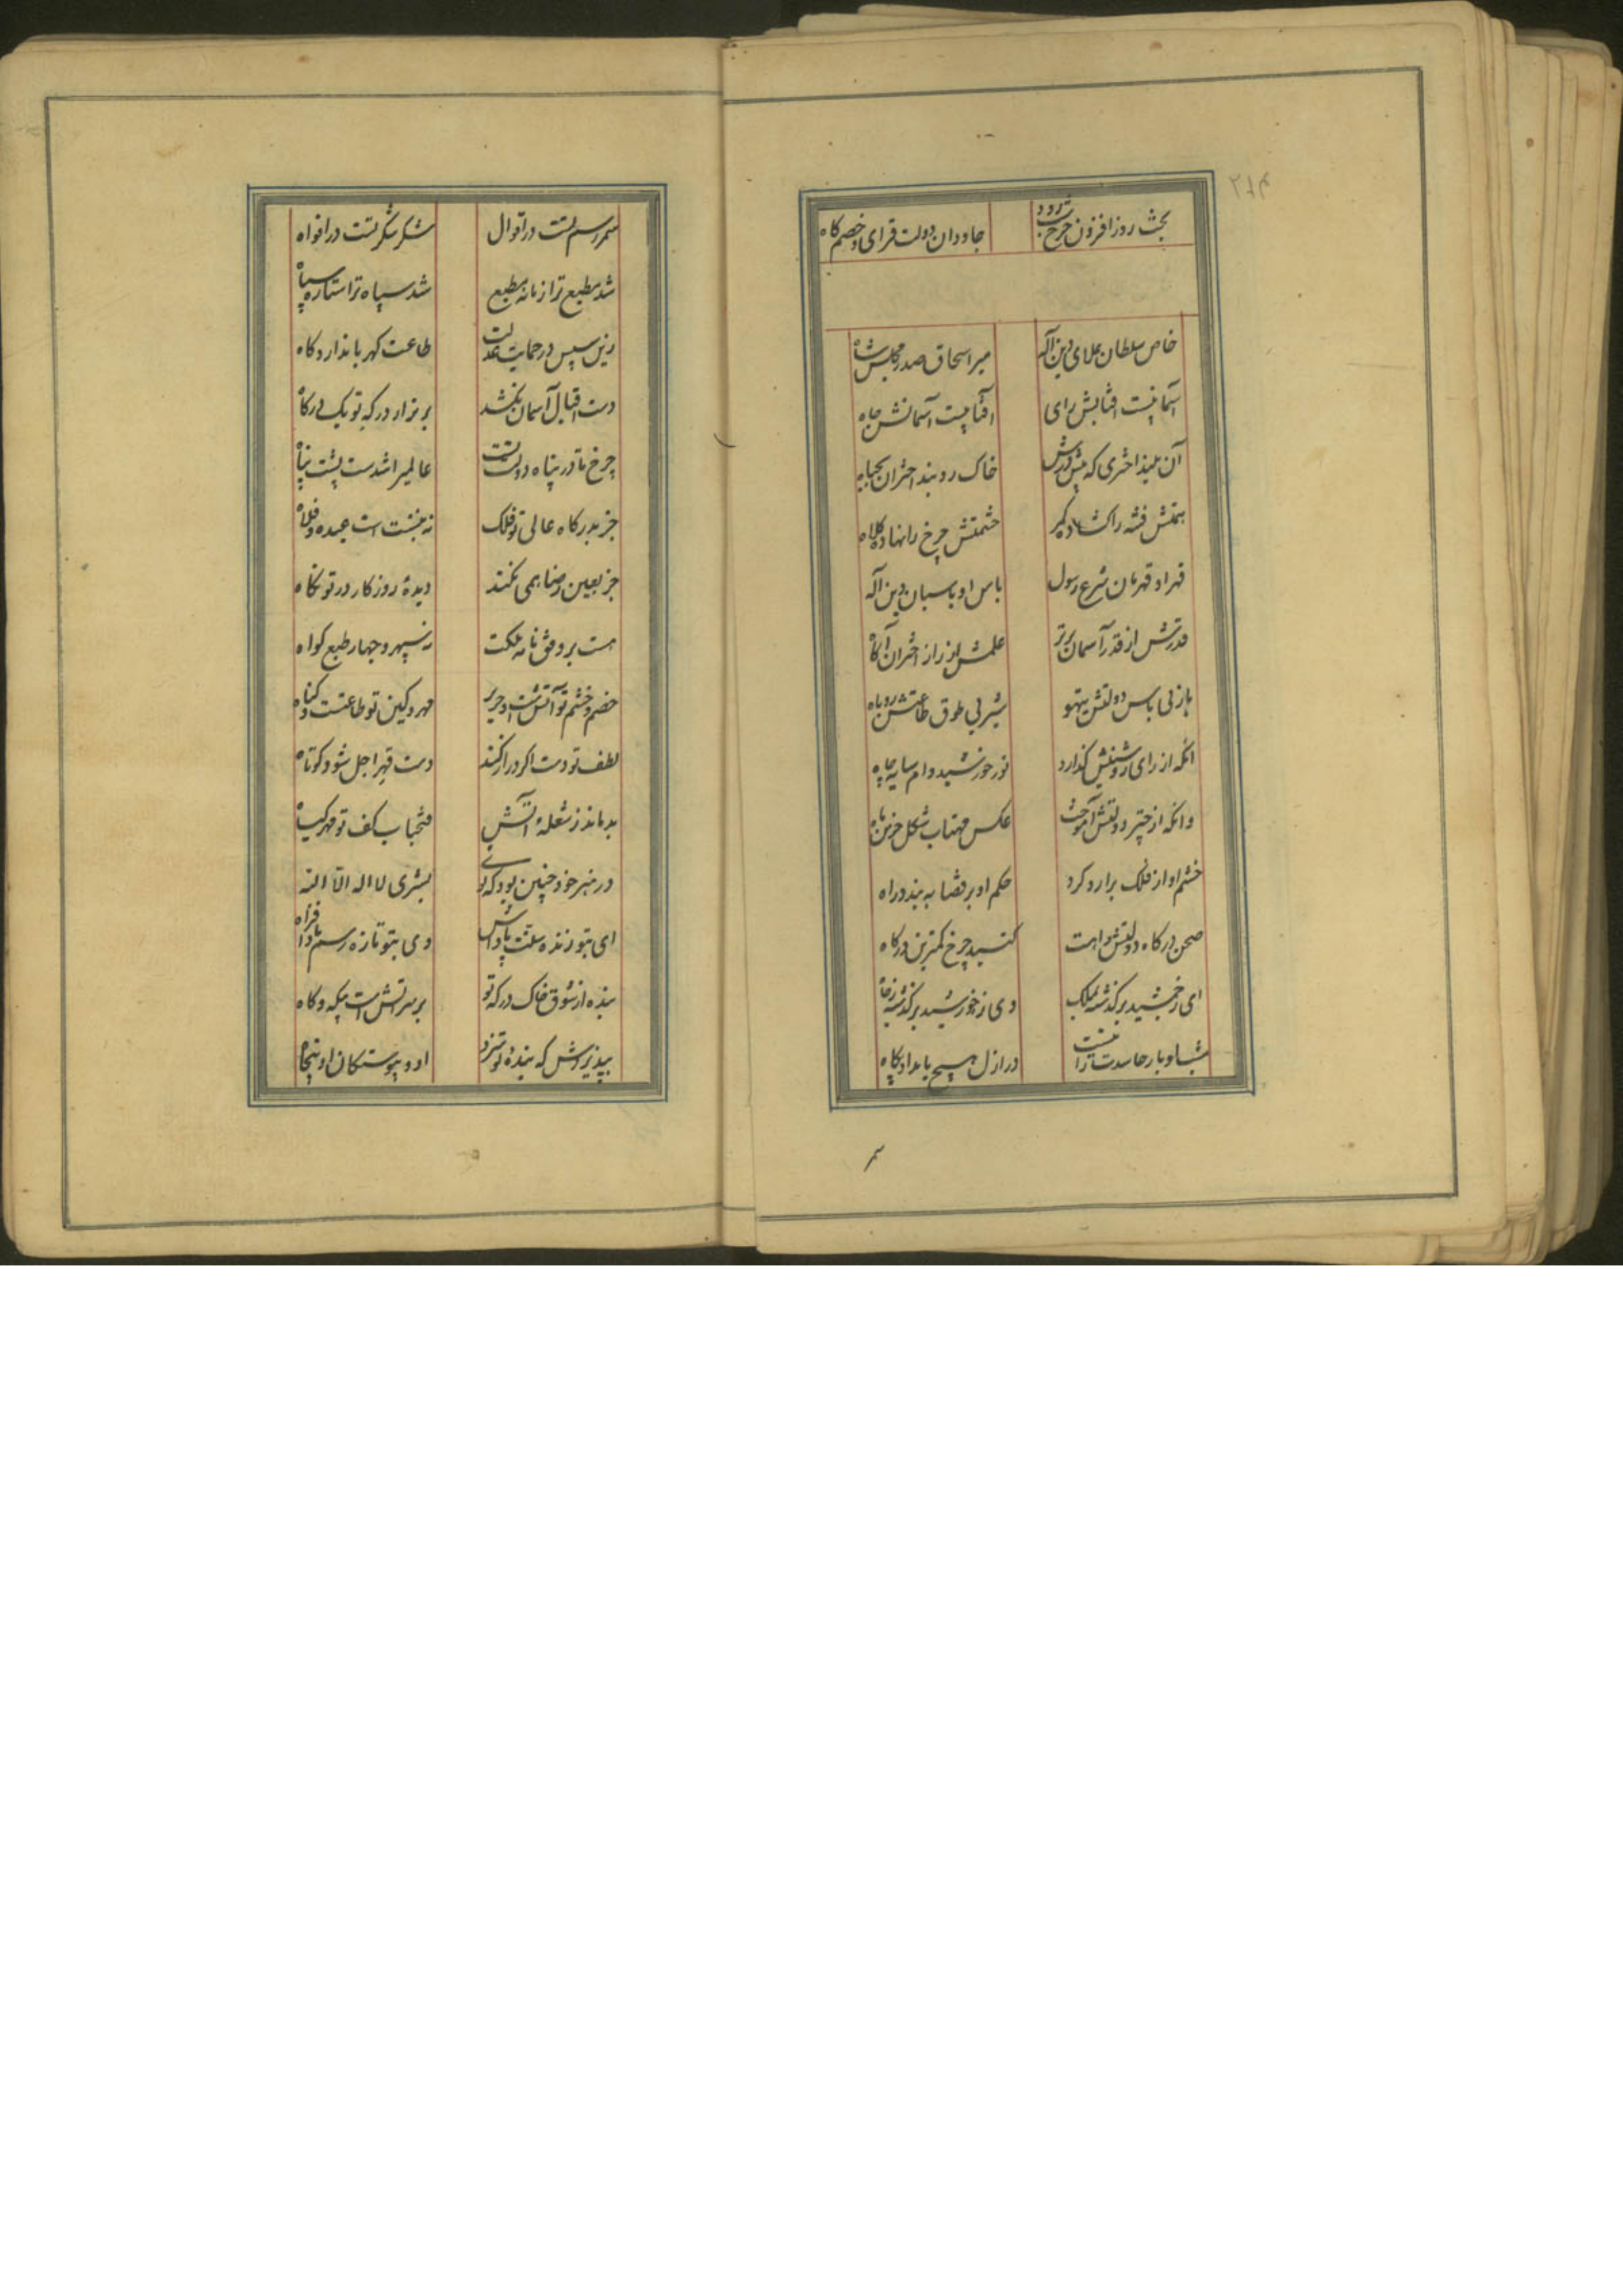 بخت روز افزون چرخ
جاودان دولت فزای و خصم کاه
خاص سلطان علای دین آله
میر اسحاق صدر مجلس شاه
آسمانیست افتابش رای
افتابیست آسمانش جاه
آن بلند اختری که پیش درش
خاک روبند اختران بجباه
همتش فتنه را کشاده کمر
حشمتش چرخ را نهاده کلاه
قهر او قهرمان شرع رسول
باس او پاسبان دین آله
قدرتش از قدر آسمان برتر
علمش از راز اختران آکاه
باز بی باس دولتش تیهو
شیر بی طوق طاعتش روباه
انکه از رای روشنش کذارد
نور خورشید وام سایه چاه
وانکه از چتر دولتش آموخت
عکس مهتاب شکل خرمن ماه
خشم او از فلک برارد کرد
حکم او بر قضا ببندد راه
صحن درکاه دولتش را هست
کنبد چرخ کمترین درکاه
ای ز جمشید برکذشته بملک
وی ز خورشید برکذشته بجاه
شب او بار حاسدت را نیست
در ازل هیچ بامداد پکاه
سمر رسم تست در اقوال
شکر شکر تست در افواه
شد مطیع ترا زمانه مطیع
شد سپاه ترا ستاره سپاه
زین سپس در حمایت عدلت
طاعت کهربا ندارد کاه
دست اقبال آسمان نکشد
بر تر از درکه تو یک درکاه
چرخ تا در پناه دولت تست
عالمیرا شدست پشت پناه
جز بدرکاه عالی تو فلک
ننبشت است عبده و فداه
جز بعین رضا همی نکند
دیدهٔ روزکار در تو نکاه
هست بر وفق نامه ملکت
نه سپهر و چهار طبع کواه
خصم و خشم تو آتش است و حریر
مهر و کین تو طاعتست و کناه
لطف تو دست اکر دراز کند
دست قهر اجل شود کوتاه
بدماند ز شعلهٔ آتش
فتحباب کف تو مهر کیاه
در هنر خود چنین بود که توی
بشری لا اله الا الله
ای بتو زنده سنت پاداش
وی بتو تازه رسم باد افراه
بنده از شوق خاک درکه تو
بر سر آتش است بیکه و کاه
بپذیرش که بندهٔ تو سزد
او و پیوستکان او پنجاه
سمر